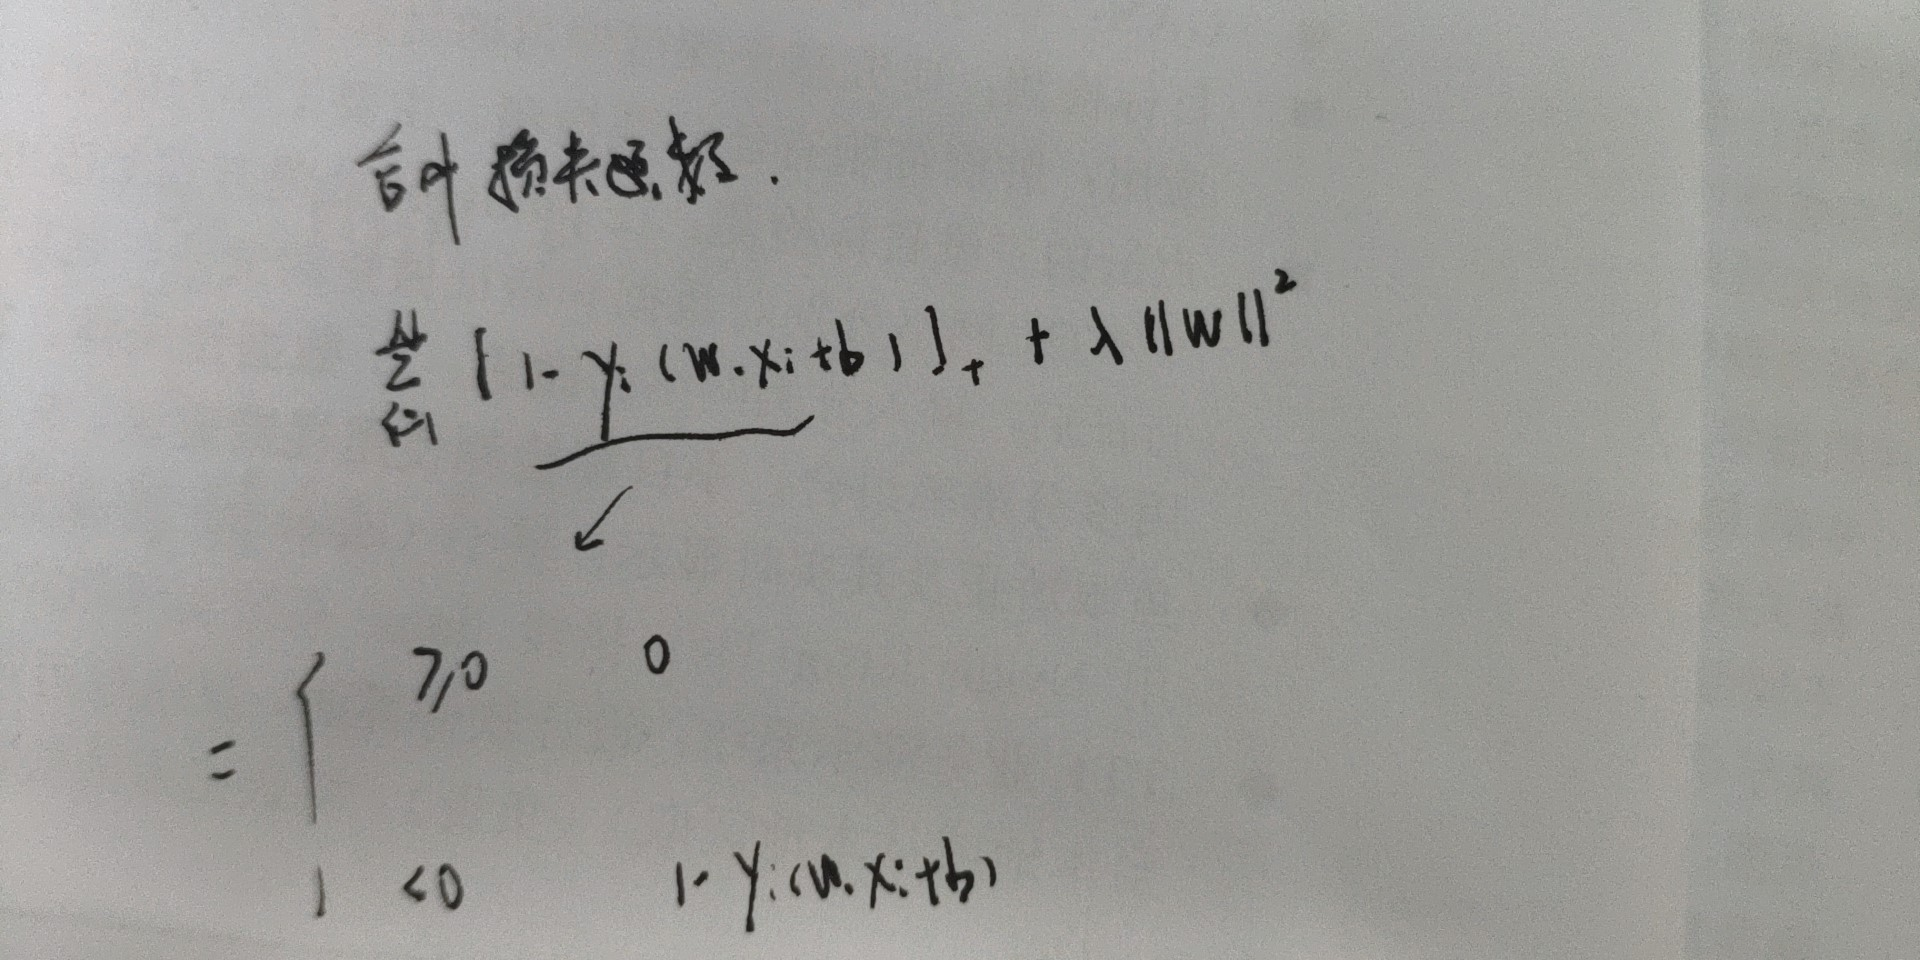 合叶损失函数.
N
∑ [1-yi(w.xi+b)]+ + λ||w||²
i=1
≥0 0
= {
<0 1-yi(w.xi+b)